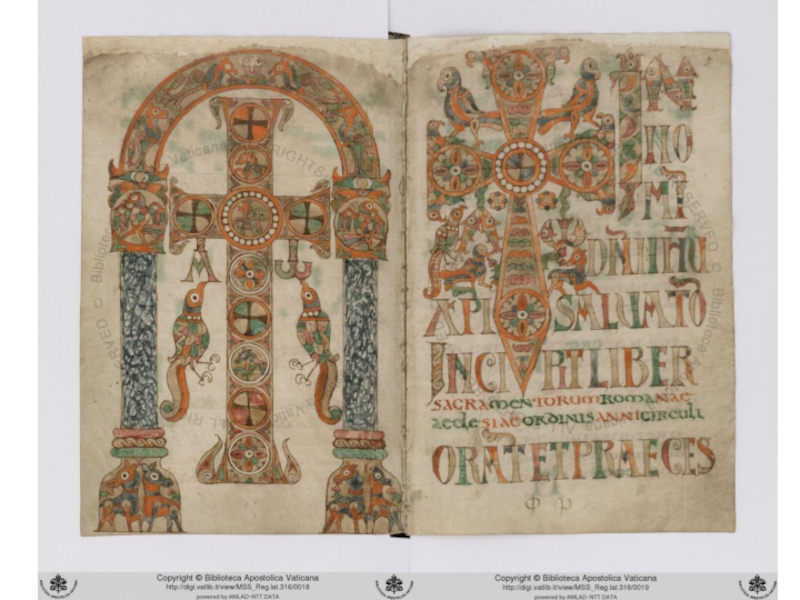 Α ω
IN
NO
MI
DÑI IHU
XPI SALUATO
INCIPIT LIBER
SACRAMENTORUM ROMANAE
AECLESIAE ORDINIS ANNI CIRCULI
ORATET PRAECES
Copyright © Biblioteca Apostolica Vaticana
http://digi.vatlib.it/view/MSS_Reg.lat.316/0018
powered by AMLAD-NTT DATA
Copyright © Biblioteca Apostolica Vaticana
http://digi.vatlib.it/view/MSS_Reg.lat.316/0019
powered by AMLAD-NTT DATA